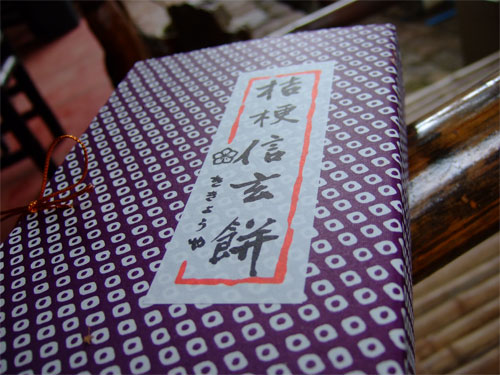 桔梗信玄餅
ききょうや